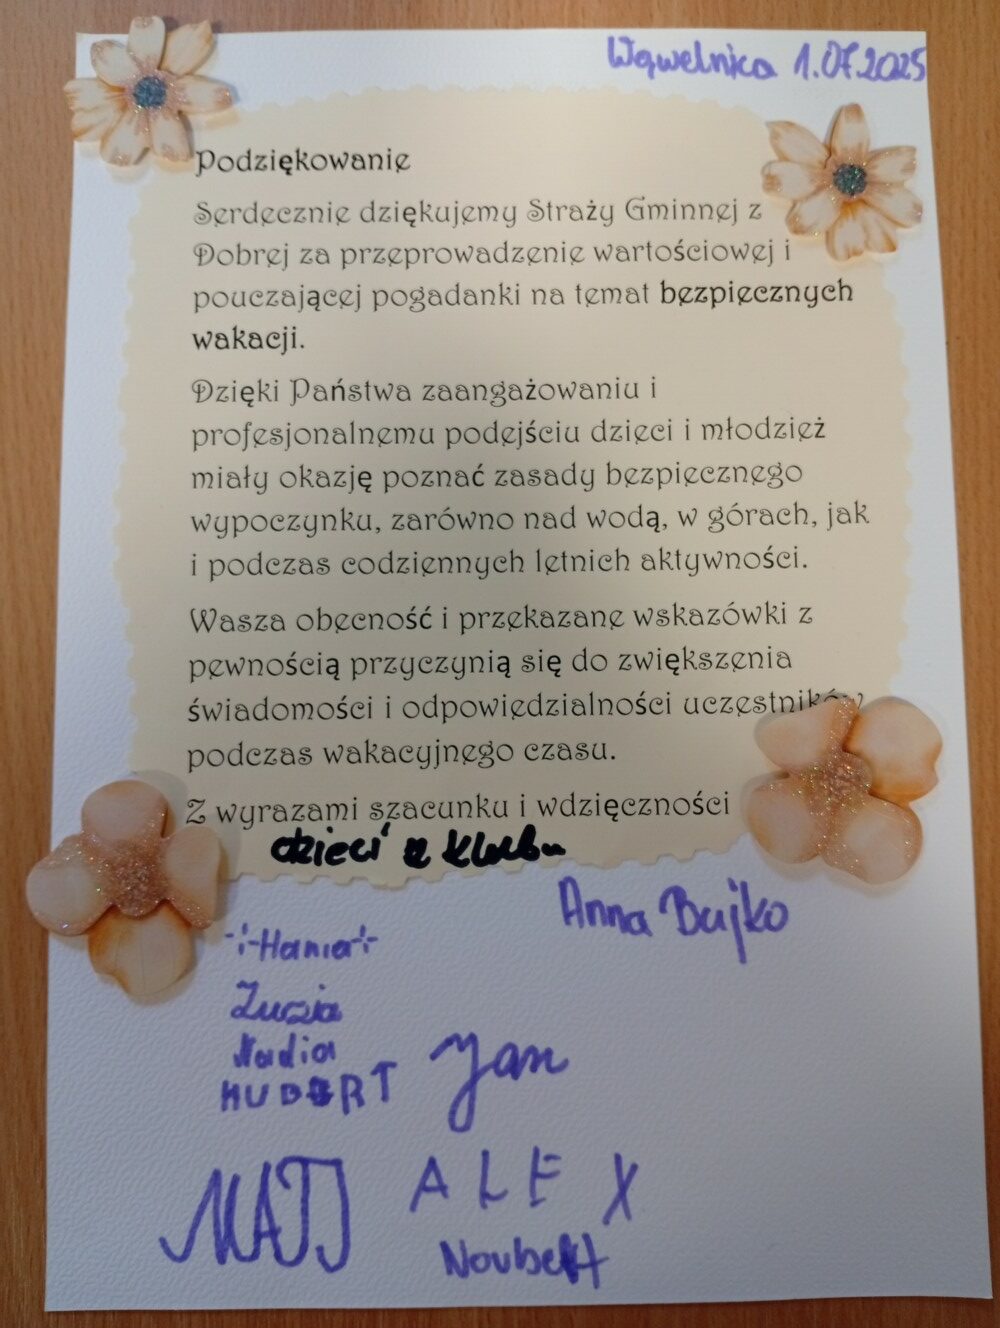 Wąwelnica 1.07.2025
Podziękowanie
Serdecznie dziękujemy Straży Gminnej z
Dobrej za przeprowadzenie wartościowej i
pouczającej pogadanki na temat bezpiecznych
wakacji.
Dzięki Państwa zaangażowaniu i
profesjonalnemu podejściu dzieci i młodzież
miały okazję poznać zasady bezpiecznego
wypoczynku, zarówno nad wodą, w górach, jak
i podczas codziennych letnich aktywności.
Wasza obecność i przekazane wskazówki z
pewnością przyczynią się do zwiększenia
świadomości i odpowiedzialności uczestników
podczas wakacyjnego czasu.
Z wyrazami szacunku i wdzięczności
dzieci z klubu
Anna Bujko
Hania
Zuzia
Nadia
HUBERT
Jan
ALEX